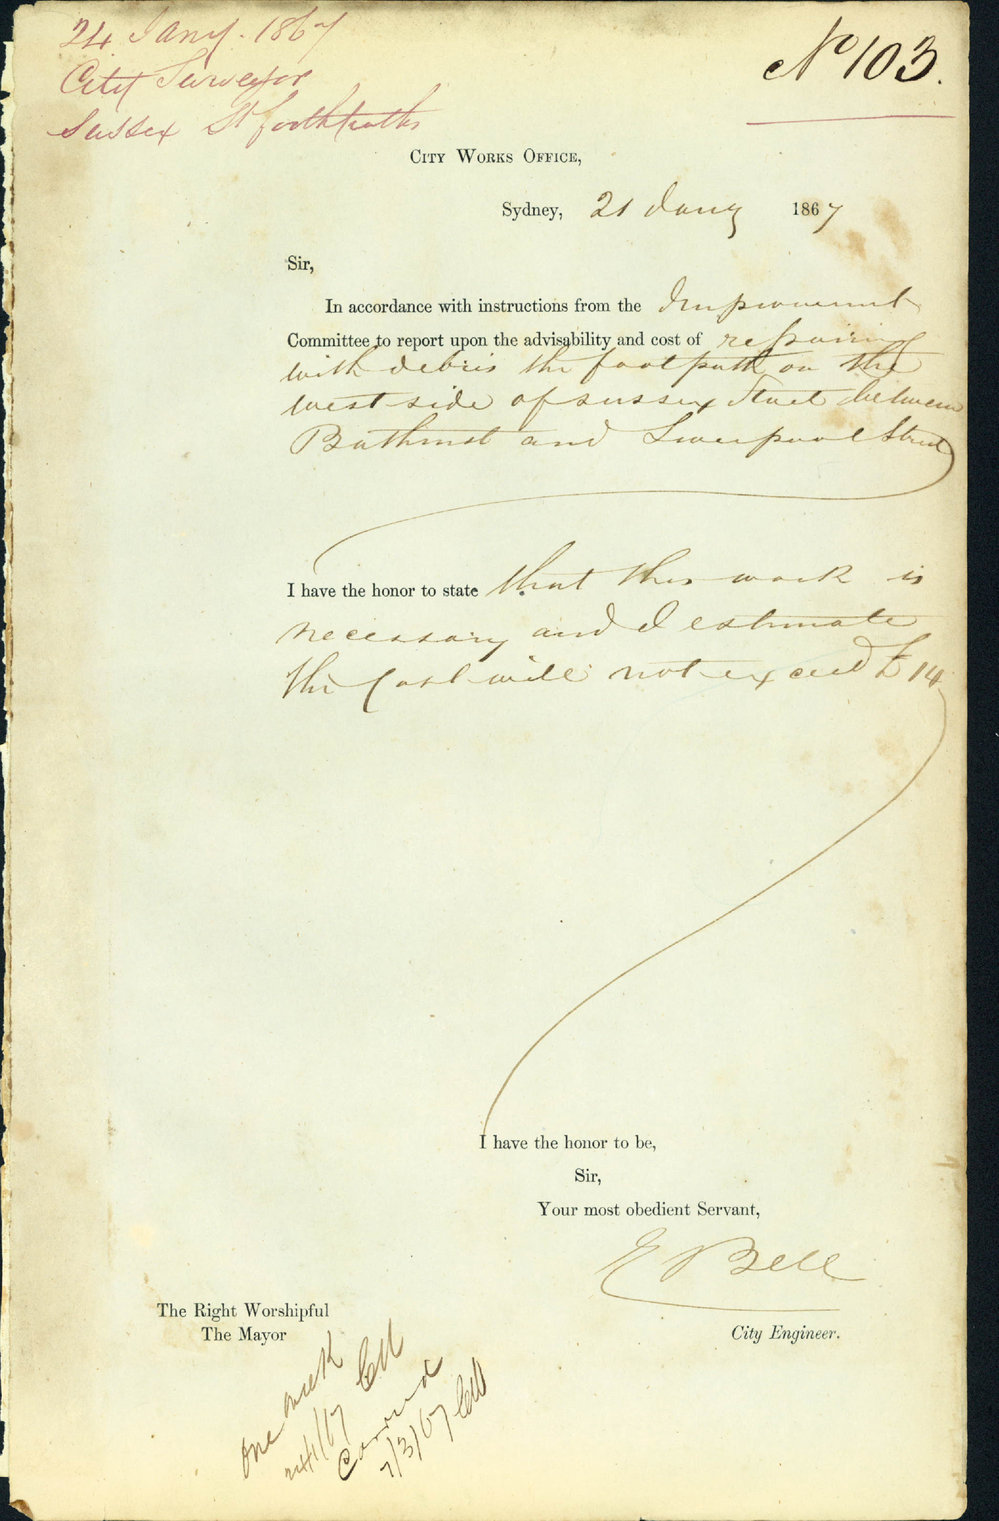 24 Jany. 1867
City Surveyor
Sussex St footpaths
No 103.
CITY WORKS OFFICE,
Sydney, 21 Jany 1867
Sir,
In accordance with instructions from the Improvement
Committee to report upon the advisability and cost of repairing
with debris the footpath on the
west side of Sussex Street between
Bathurst and Liverpool Street
I have the honor to state that this work is
necessary and I estimate
the Cost will not exceed £14
I have the honor to be,
Sir,
Your most obedient Servant,
E Bell
The Right Worshipful
The Mayor
City Engineer.
One week
24/1/67
Carried
7/3/67